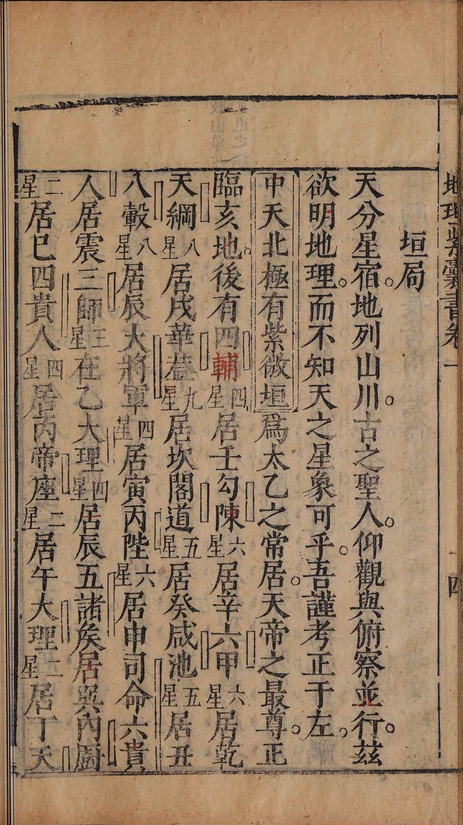 地理紫囊書卷一
四
垣局
天分星宿。地列山川。古之聖人。仰觀與俯察並行。茲
欲明地理而不知天之星象可乎。吾謹考正于左。
中天北極有紫微垣為太乙之常居。天帝之最尊正
臨亥地後有四輔四星居壬勾陳六星居辛六甲六星居乾
天綱八星居戌華蓋九星居坎閣道五星居癸咸池五星居丑
八轂八星居辰大將軍四星居寅丙陛六星居申司命六貴
人居震三師三星在乙大理四星居辰五諸矦居巽內廚
二星居巳四貴人四星居丙帝座二星居午大理二星居丁天